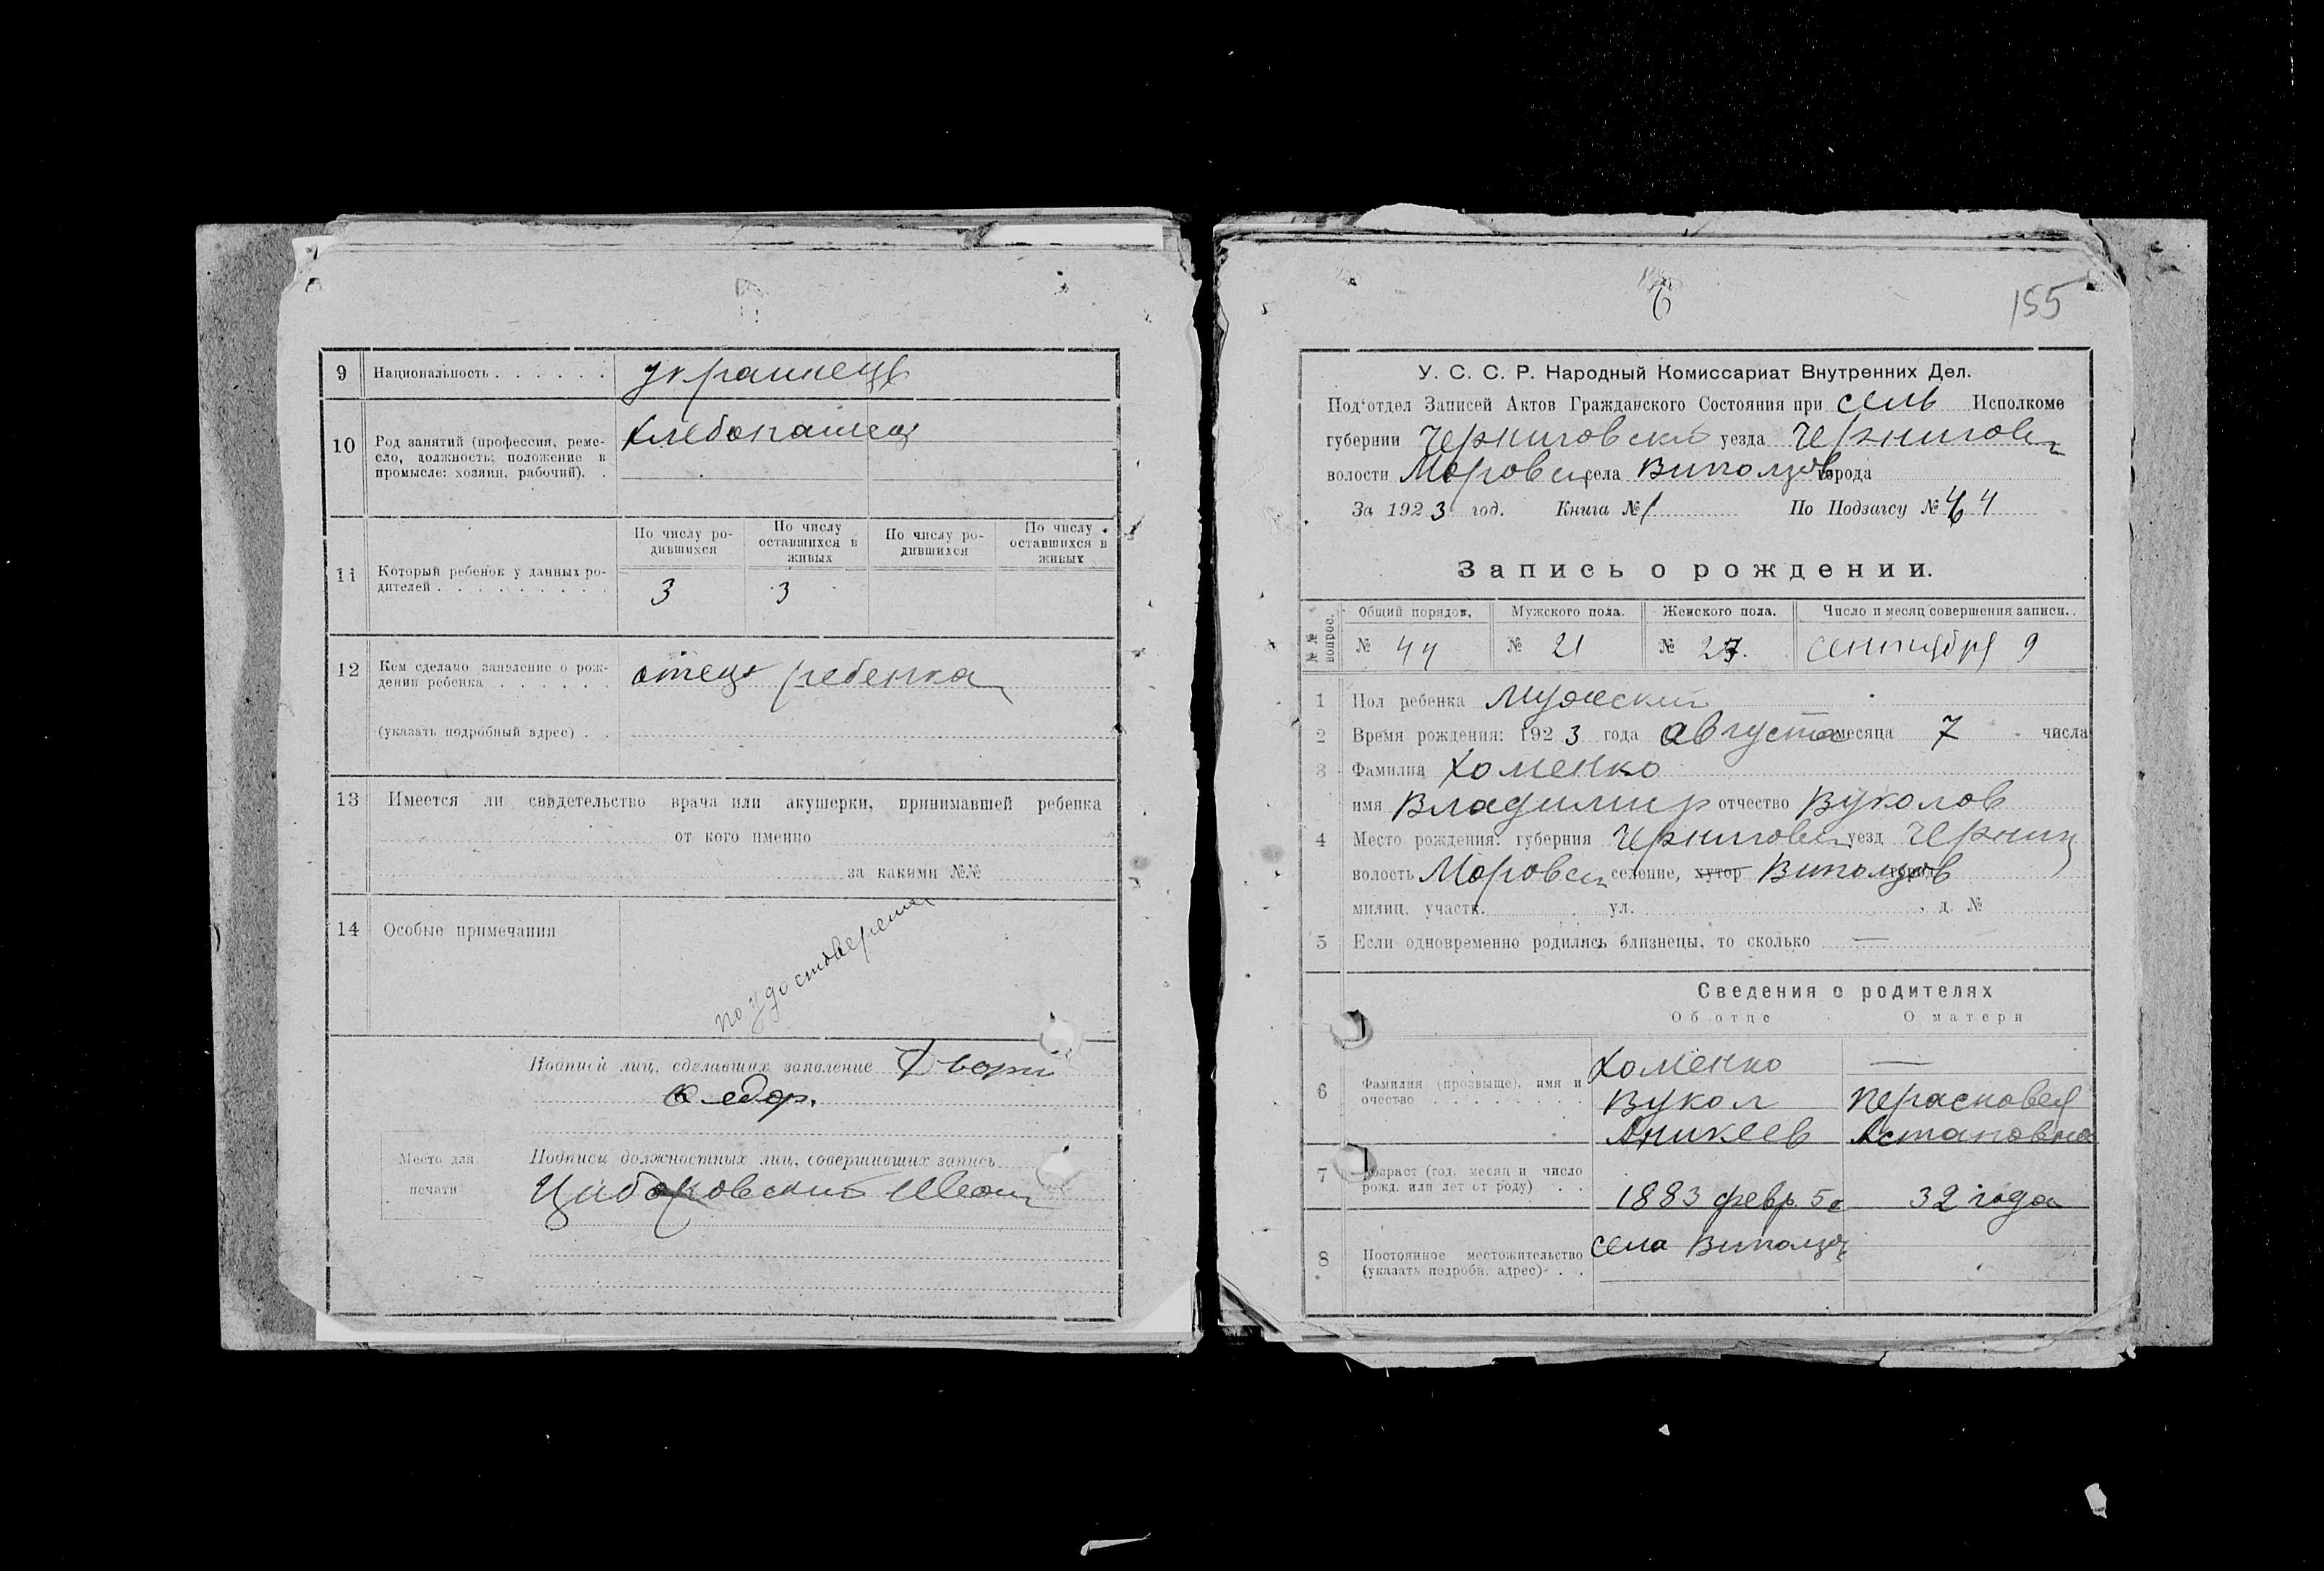 9 Национальность . . . . . . украинець
10 Род занятий (профессия, реме-
сло, должность; положение в
промысле: хозяин, рабочий). .
хлебопашец
11 Который ребенок у данных ро-
дителей . . . . . . . . .
По числу ро-
дившихся
По числу
оставшихся в
живых
По числу ро-
дившихся
По числу
оставшихся в
живых
3 3
12 Кем сделано заявление о рож-
дении ребенка . . . . . . отец ребенка
(указать подробный адрес) . .
13 Имеется ли свидетельство врача или акушерки, принимавшей ребенка
от кого именно
за какими №№
14 Особые примечания
по удостоверения
Подписи лиц, сделавших заявление
Место для
печати
Подписи должностных лиц, совершивших запись
6
155
У. С. С. Р. Народный Комиссариат Внутренних Дел.
Под'отдел Записей Актов Гражданского Состояния при сель Исполкоме
губернии Черниговской уезда Чернигов
волости Моровск села Виползов города
За 1923 год. Книга № 1 По Подзагсу № 44
Запись о рождении.
№№ вопрос.
Общий порядов. Мужского пола. Женского пола. Число и месяц совершения записи.
№ 44 № 21 № 23. сентября 9
1 Пол ребенка мужской
2 Время рождения: 1923 года августа месяца 7 числа
3 Фамилия Хоменко
имя Владимир отчество Вуколов
4 Место рождения: губерния Черниговск уезд Черниг
волость Моровск селение, хутор Виползов город
милиц. участк. ул. д. №
5 Если одновременно родились близнецы, то сколько —
Сведения о родителях
Об отце О матери
6 Фамилия (прозвыще), имя и
очество . . . . . . . .
Хоменко —
Вукол Перасковея
Аникеев Астаповна
7 Возраст (год, месяц и число
рожд. или лет от роду) . .
1883 февр. 5 32 года
8 Постоянное местожительство
(указать подробн. адрес) . .
села Виползов